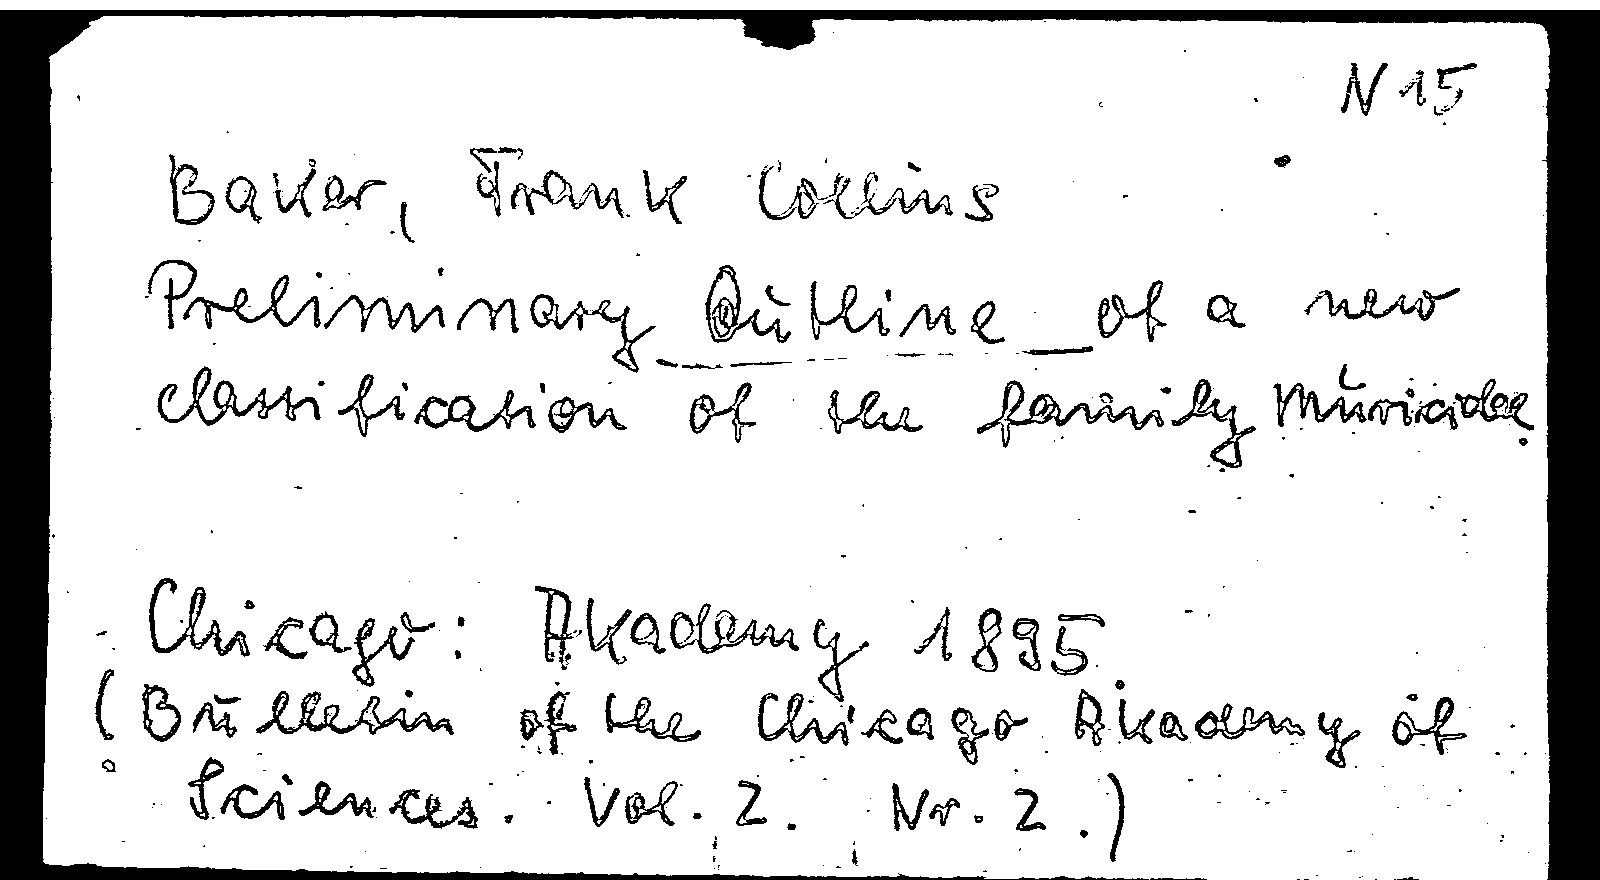 N 15
Baker, Frank Collins
Preliminary Outline of a new
classification of the family Muricidae.
Chicago: Akademy 1895
(Bulletin of the Chicago Akademy of
Sciences. Vol. 2. Nr. 2.)